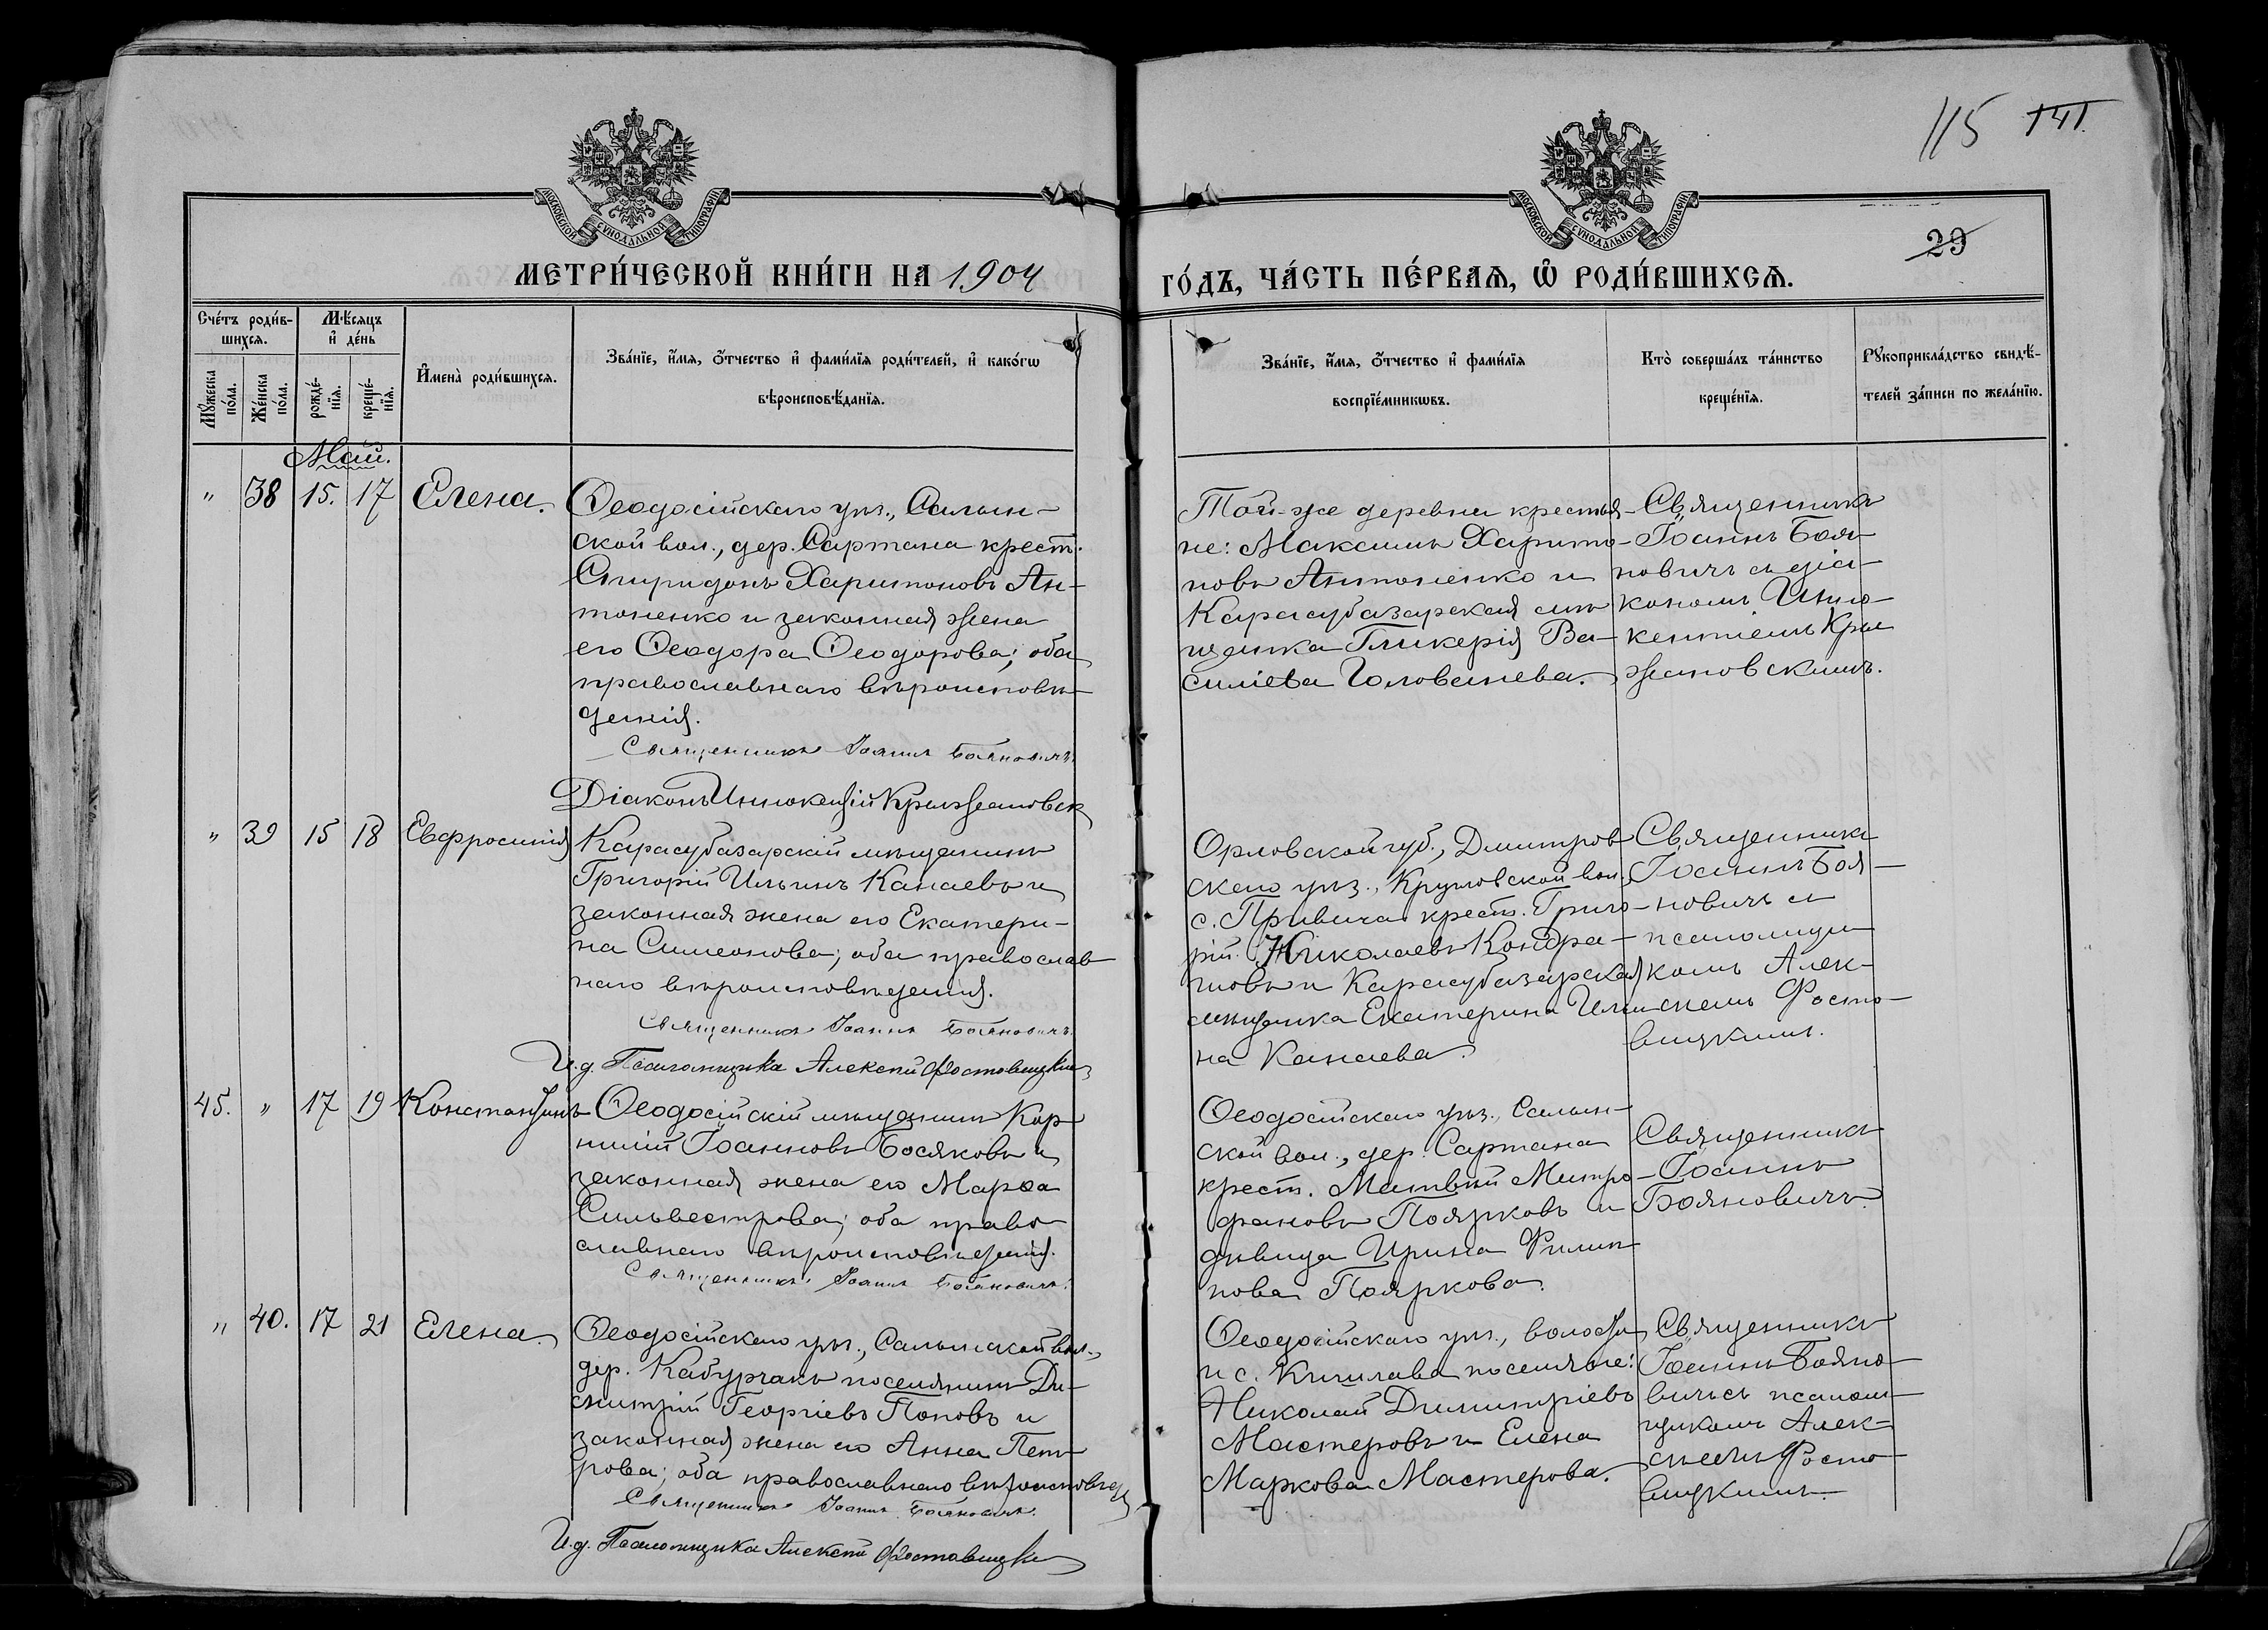 115 141.
29
МОСКОВСКОЙ СѴНОДАЛЬНОЙ ТИПОГРАФІИ
МОСКОВСКОЙ СѴНОДАЛЬНОЙ ТИПОГРАФІИ
МЕТРИ́ЧЕСКОЙ КНИ́ГИ НА 1904
ГО́ДЪ, ЧА́СТЬ ПЕ́РВАѦ, Ѡ РОДИ́ВШИХСѦ.
Сче́тъ роди́в-
шихсѧ.
Мѣ́сѧцъ
и҆ де́нь
Мꙋ́жеска
по́ла.
Же́нска
по́ла.
рожде́-
нїѧ.
креще́-
нїѧ.
И҆мена̀ роди́вшихсѧ.
Зва́нїе, и҆́мѧ, ѻ҆́тчество и҆ фами́лїѧ роди́телей, и҆ како́гѡ
вѣроисповѣ́данїѧ.
Зва́нїе, и҆́мѧ, ѻ҆́тчество и҆ фами́лїѧ
воспрїе́мникѡвъ.
Кто̀ соверша́лъ та́инство
креще́нїѧ.
Рꙋкоприкла́дство свидѣ́-
телей за́писи по жела́нїю.
Май.
" 38 15. 17 Елена.
Ѳеодосійскаго уѣз., Салын-
ской вол., дер. Сартана крест.
Спиридонъ Харитоновъ Ан-
тоненко и законная жена
его Ѳеодора Ѳеодорова; оба
православнаго вѣроисповѣ-
денія.
Священникъ Іоаннъ Бояновичъ
Діаконъ Иннокентій Крыжановск
Той-же деревни крестья-
не: Максимъ Харито-
новъ Антоненко и
Карасубазарская мѣ
щанка Гликерія Ва-
силіева Голованева.
Священникъ
Іоаннъ Боя-
новичъ съ діа-
кономъ Инно-
кентіемъ Кры
жановскимъ.
" 39 15 18 Евфросинія
Карасубазарскій мѣщанинъ
Григорій Ильинъ Канаевъ и
законная жена его Екатери-
на Симеонова; оба православ
наго вѣроисповѣденія.
Священникъ Іоаннъ Бояновичъ.
И.д. Псаломщика Алексѣй Фостовицкій
Орловской губ., Дмитров
скаго уѣз., Кругловской вол.
с. Привича крест. Григо-
рій Николаевъ Кондра-
шовъ и Карасубазарская
мѣщанка Екатерина Ильи
на Канаева.
Священникъ
Іоаннъ Боя-
новичъ съ
псаломщи
комъ Алек-
сѣемъ Фосто-
вицкимъ.
45. " 17 19 Константинъ
Ѳеодосійскій мѣщанинъ Кор
нилій Іоанновъ Босяковъ и
законная жена его Марѳа
Сильвестрова; оба право
славнаго вѣроисповѣденія.
Священникъ Іоаннъ Бояновичъ.
Ѳеодосійскаго уѣз., Салын-
ской вол., дер. Сартана
крест. Матвѣй Митро-
фановъ Поярковъ и
дѣвица Ирина Филип
пова Пояркова.
Священникъ
Іоаннъ
Бояновичъ.
" 40. 17 21 Елена.
Ѳеодосійскаго уѣз., Салынской вол.,
дер. Кабурчакъ поселянинъ Ди-
митрій Георгіевъ Поповъ и
законная жена его Анна Пет-
рова; оба православнаго вѣроисповѣд
Священникъ Іоаннъ Бояновичъ.
И.д. Псаломщика Алексѣй Фостовицкій
Ѳеодосійскаго уѣз., волости
и с. Кишлава поселяне:
Николай Димитріевъ
Мастеровъ и Елена
Маркова Мастерова.
Священникъ
Іоаннъ Бояно-
вичъ съ псалом-
щикомъ Алек-
сѣемъ Фосто-
вицкимъ.